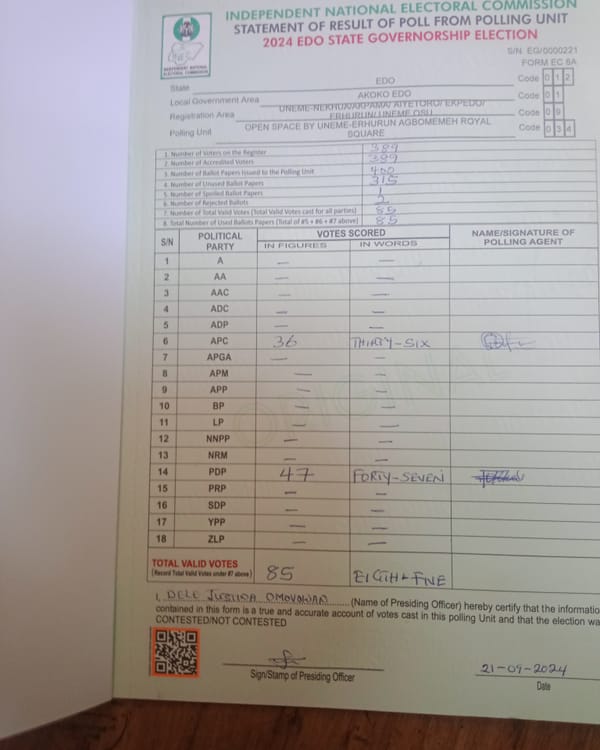 INDEPENDENT NATIONAL ELECTORAL COMMISSION
STATEMENT OF RESULT OF POLL FROM POLLING UNIT
2024 EDO STATE GOVERNORSHIP ELECTION
INDEPENDENT NATIONAL ELECTORAL COMMISSION
S/N EG/0000221
FORM EC 8A
State EDO Code 0 1 2
Local Government Area AKOKO EDO Code 0 1
Registration Area UNEME-NEKHUA/AKPAMA/ AIYETORO/ EKPEDO/ ERHURUN/ UNEME OSU Code 0 9
Polling Unit OPEN SPACE BY UNEME-ERHURUN AGBOMEMEH ROYAL SQUARE Code 0 3 4
1. Number of Voters on the Register 389
2. Number of Accredited Voters 389
3. Number of Ballot Papers Issued to the Polling Unit 400
4. Number of Unused Ballot Papers 315
5. Number of Spoiled Ballot Papers 1
6. Number of Rejected Ballots 2
7. Number of Total Valid Votes (Total Valid Votes cast for all parties) 85
8. Total Number of Used Ballots Papers (Total of #5 + #6 + #7 above) 85
S/N POLITICAL PARTY VOTES SCORED NAME/SIGNATURE OF POLLING AGENT
IN FIGURES IN WORDS
1 A — —
2 AA — —
3 AAC — —
4 ADC — —
5 ADP — —
6 APC 36 THIRTY-SIX
7 APGA — —
8 APM — —
9 APP — —
10 BP — —
11 LP — —
12 NNPP — —
13 NRM — —
14 PDP 47 FORTY-SEVEN
15 PRP — —
16 SDP — —
17 YPP — —
18 ZLP — —
TOTAL VALID VOTES 85
(Record Total Valid Votes under #7 above)
ORIGINAL
I, DELE (Name of Presiding Officer) hereby certify that the informatio
contained in this form is a true and accurate account of votes cast in this polling Unit and that the election wa
CONTESTED/NOT CONTESTED
Sign/Stamp of Presiding Officer
21-09-2024
Date